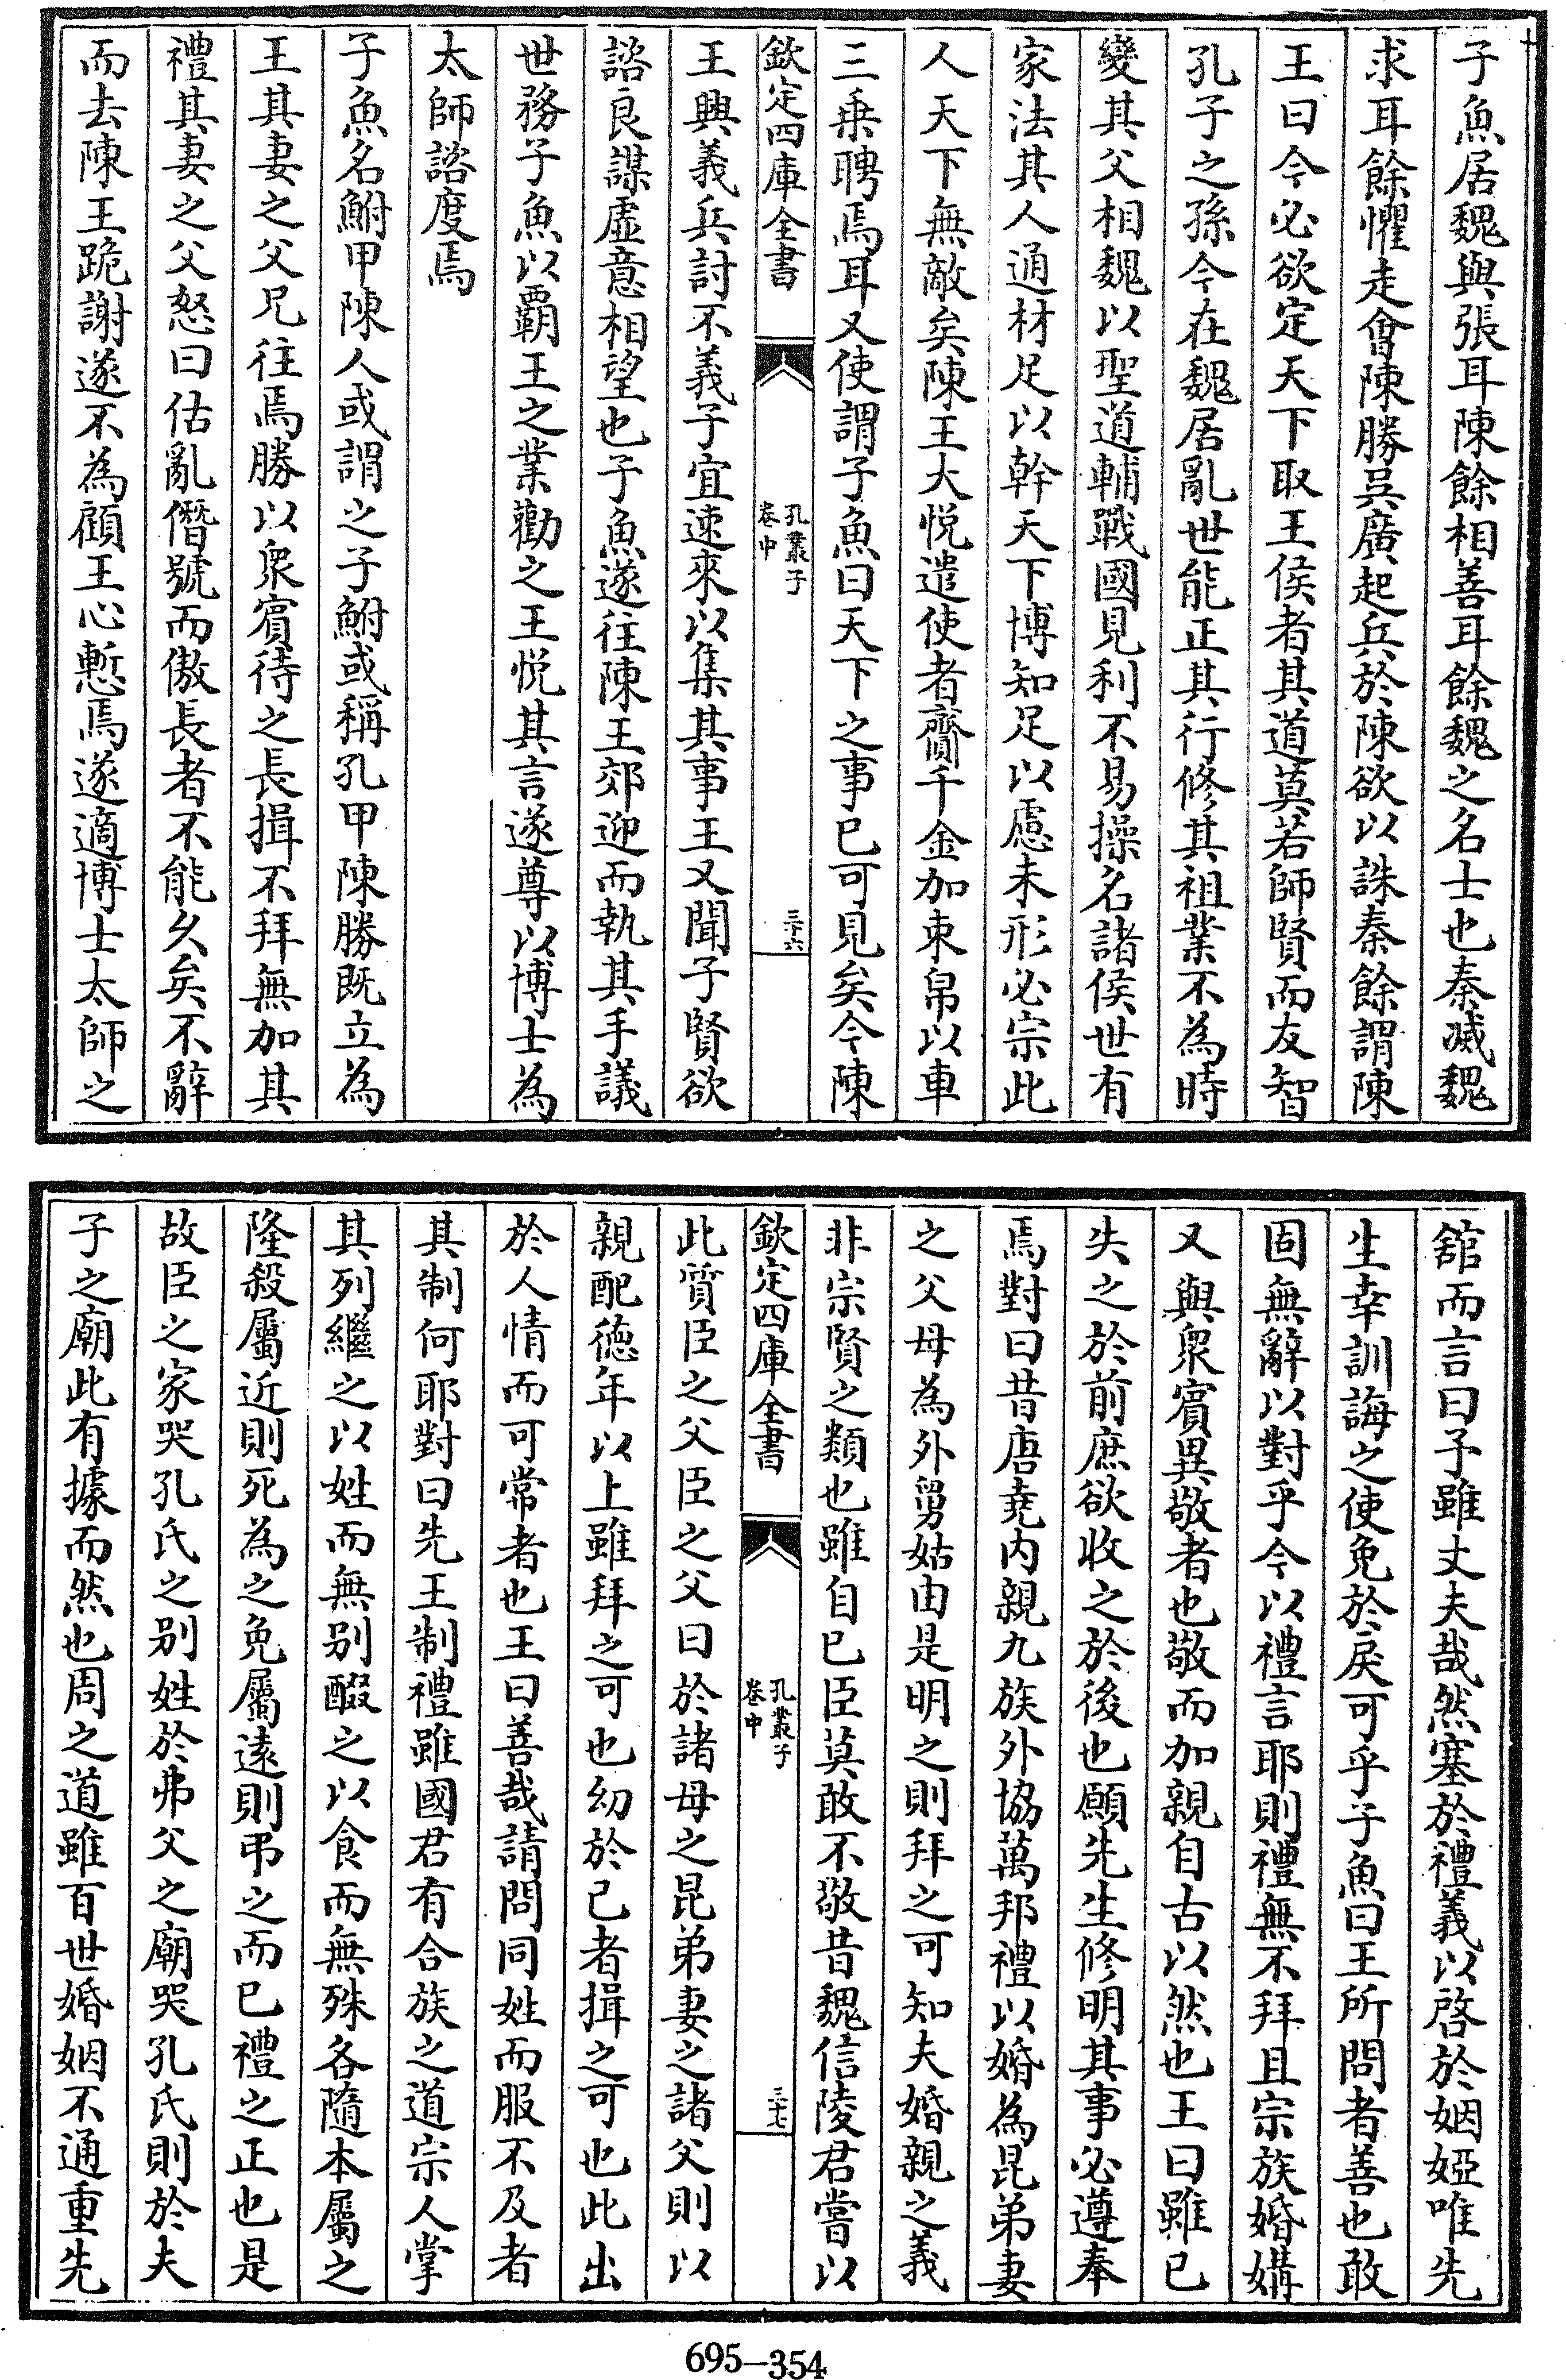 子魚居魏與張耳陳餘相善耳餘魏之名士也秦滅魏
求耳餘懼走會陳勝吳廣起兵於陳欲以誅秦餘謂陳
王曰今必欲定天下取王侯者其道莫若師賢而友智
孔子之孫今在魏居亂世能正其行修其祖業不為時
變其父相魏以聖道輔戰國見利不易操名諸侯世有
家法其人通材足以幹天下博知足以慮未形必宗此
人天下無敵矣陳王大悦遣使者齎千金加束帛以車
三乗聘焉耳又使謂子魚曰天下之事已可見矣今陳
欽定四庫全書
孔叢子
卷中
三十六
王興義兵討不義子宜速來以集其事王又聞子賢欲
諮良謀虛意相望也子魚遂往陳王郊迎而執其手議
世務子魚以覇王之業勸之王悦其言遂尊以博士為
太師諮度焉
子魚名鮒甲陳人或謂之子鮒或稱孔甲陳勝既立為
王其妻之父兄往焉勝以衆賓待之長揖不拜無加其
禮其妻之父怒曰估亂僭號而傲長者不能久矣不辭
而去陳王跪謝遂不為顧王心慙焉遂適博士太師之
舘而言曰予雖丈夫哉然塞於禮義以啓於姻婭唯先
生幸訓誨之使免於戾可乎子魚曰王所問者善也敢
固無辭以對乎今以禮言耶則禮無不拜且宗族婚媾
又與衆賓異敬者也敬而加親自古以然也王曰雖已
失之於前庶欲收之於後也願先生修明其事必遵奉
焉對曰昔唐堯内親九族外協萬邦禮以婚為昆弟妻
之父母為外舅姑由是明之則拜之可知夫婚親之義
非宗賢之類也雖自已臣莫敢不敬昔魏信陵君嘗以
欽定四庫全書
孔叢子
卷中
三十七
此質臣之父臣之父曰於諸母之昆弟妻之諸父則以
親配徳年以上雖拜之可也幼於己者揖之可也此出
於人情而可常者也王曰善哉請問同姓而服不及者
其制何耶對曰先王制禮雖國君有合族之道宗人掌
其列繼之以姓而無别醊之以食而無殊各隨本屬之
隆殺屬近則死為之免屬逺則弔之而已禮之正也是
故臣之家哭孔氏之别姓於弗父之廟哭孔氏則於夫
子之廟此有據而然也周之道雖百世婚姻不通重先
695-354